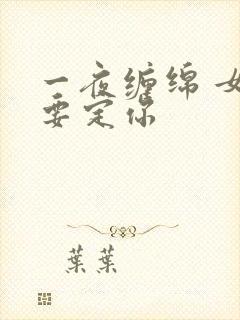 一夜缠绵 女
要定你
葉葉